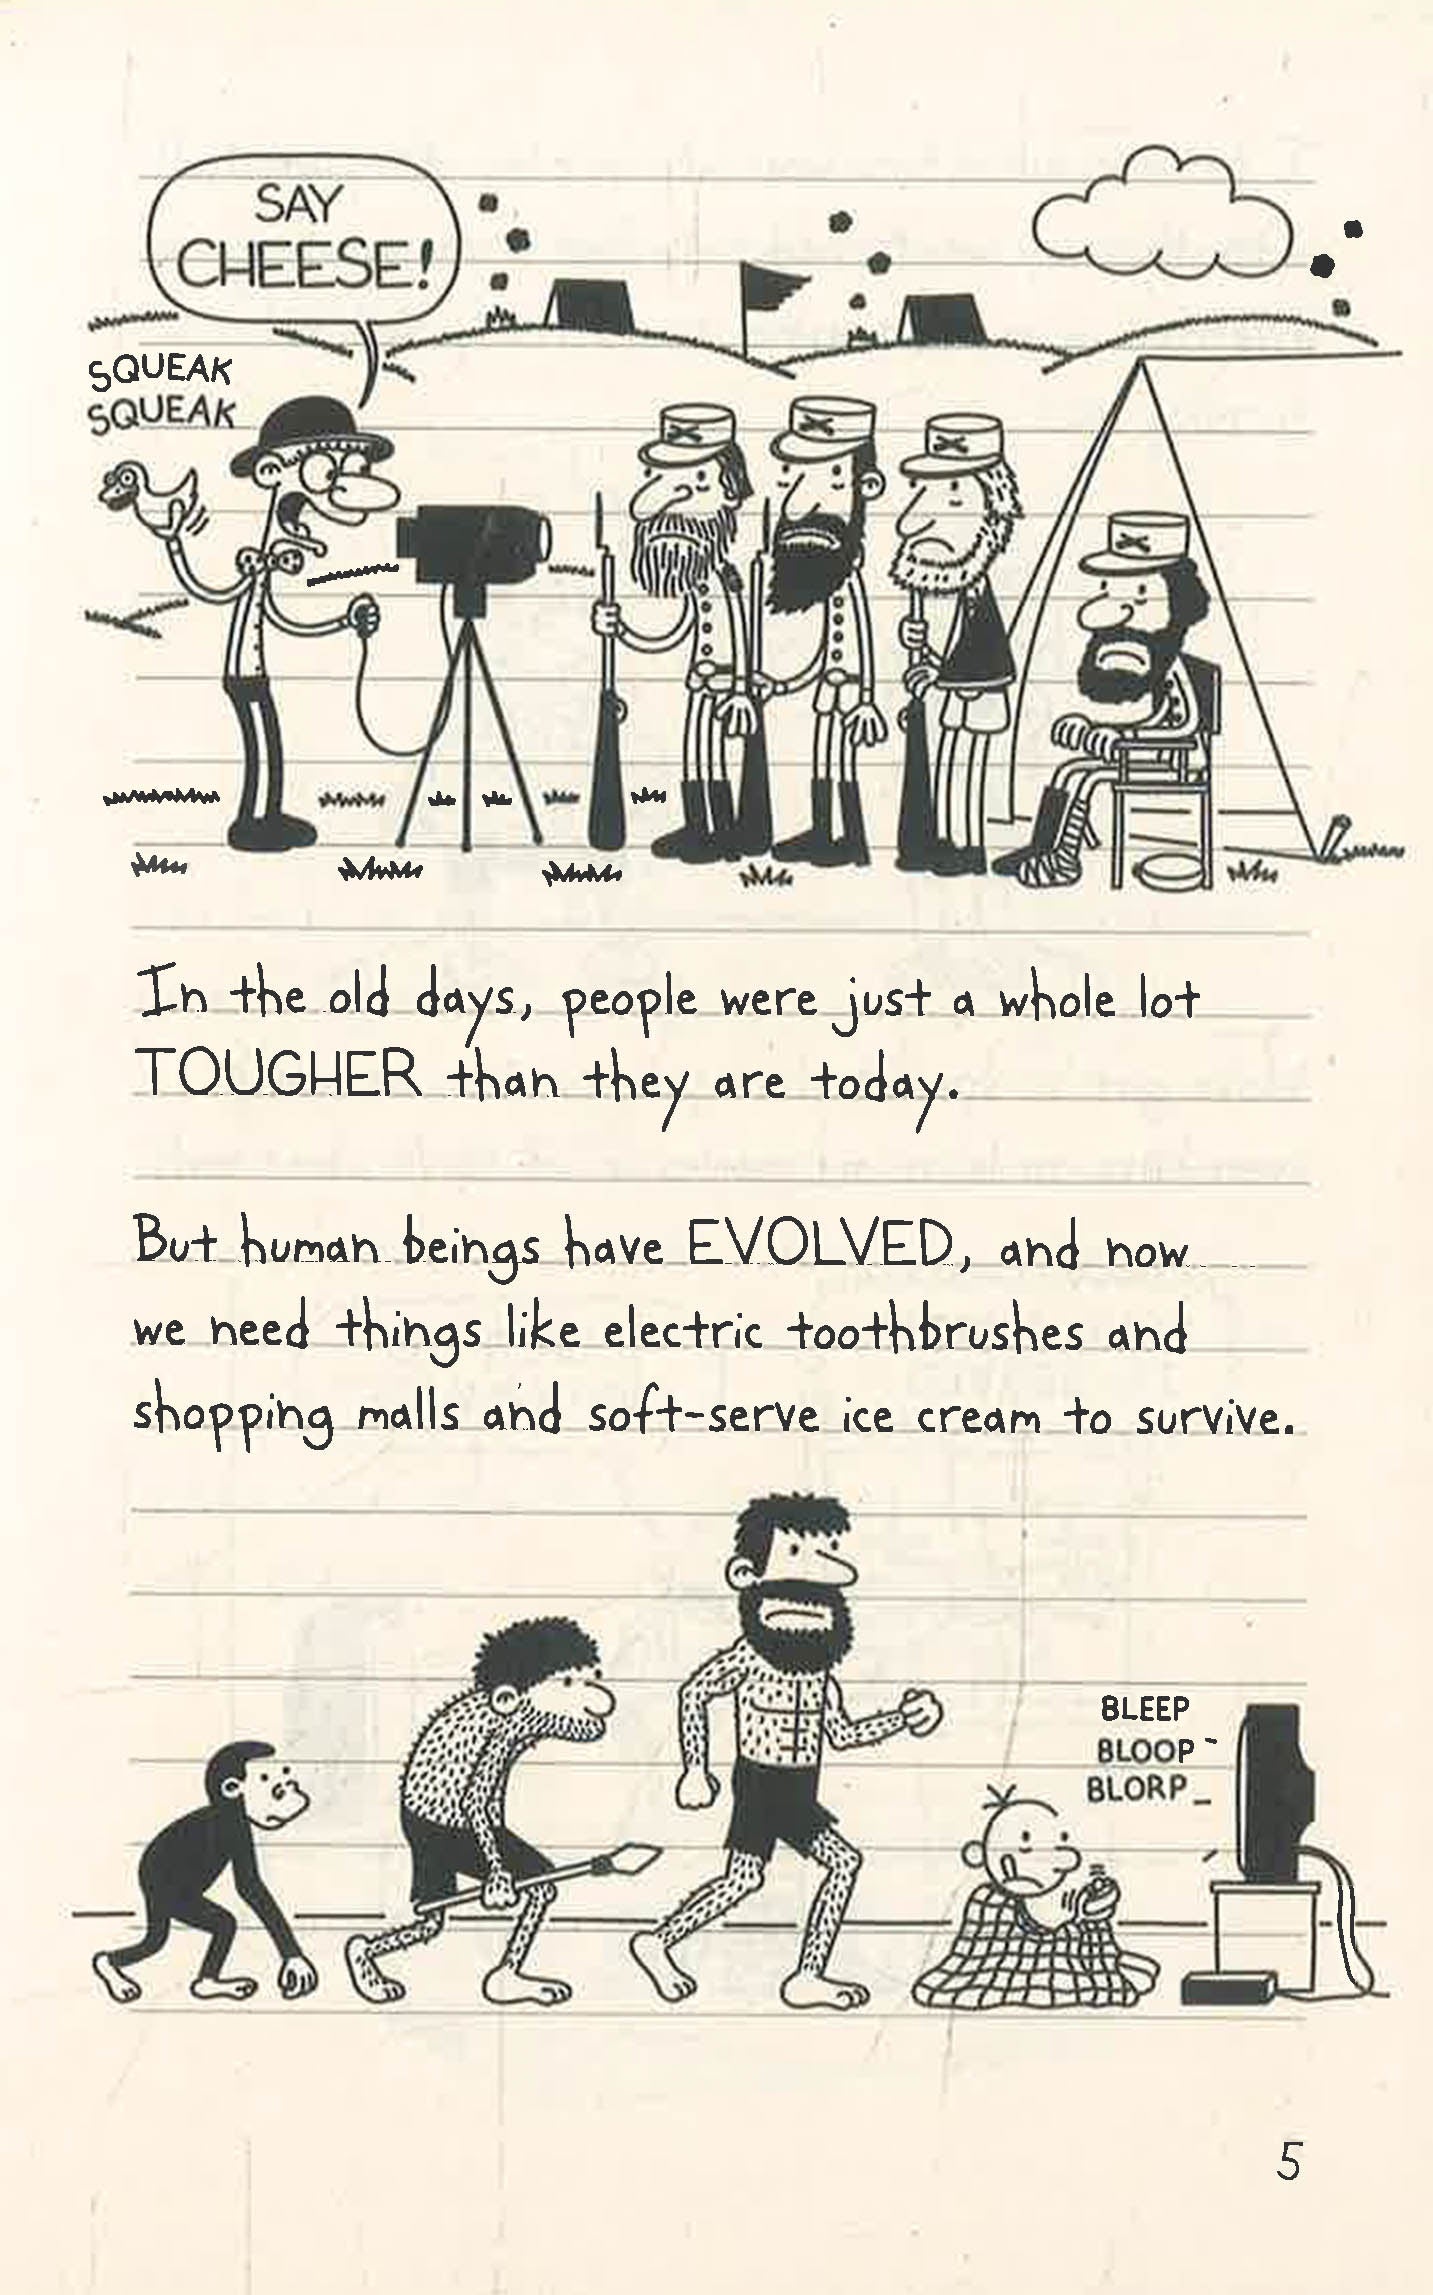 SAY
CHEESE!
SQUEAK
SQUEAK
In the old days, people were just a whole lot
TOUGHER than they are today.
But human beings have EVOLVED, and now
we need things like electric toothbrushes and
shopping malls and soft-serve ice cream to survive.
BLEEP
BLOOP
BLORP
5